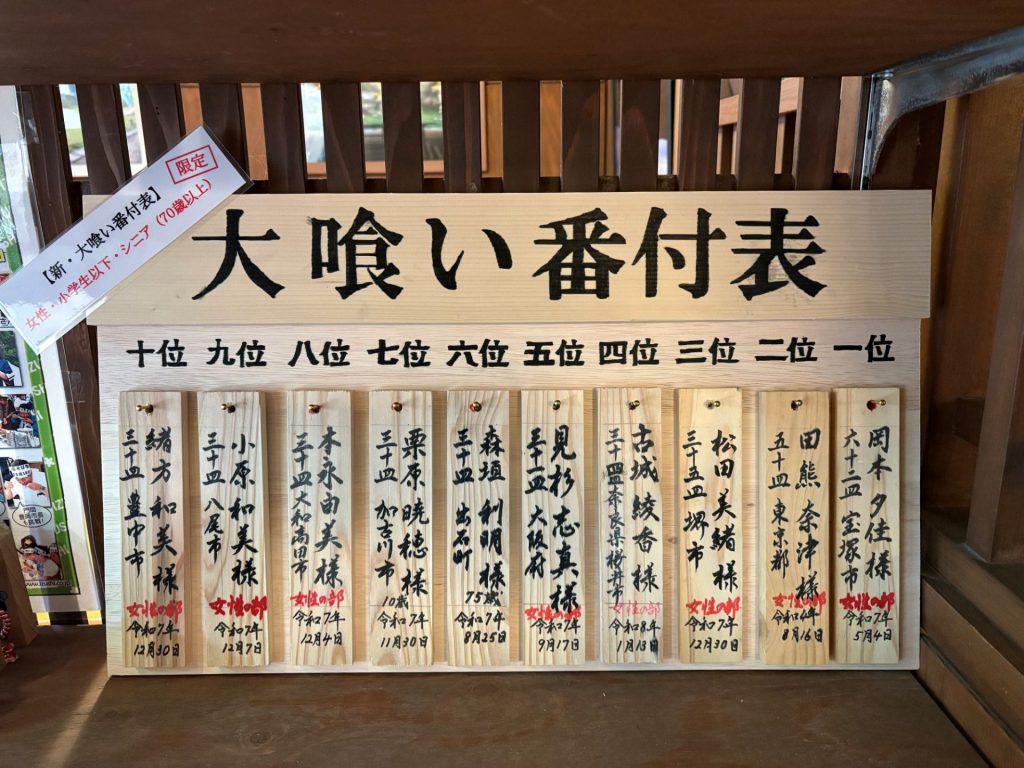 【新・大喰い番付表】 限定
女性・小学生以下・シニア(70歳以上)
大喰い番付表
一位
岡本夕佳様
六十二皿 宝塚市
女性の部
令和7年
5月4日
二位
田熊奈津様
五十皿 東京都
女性の部
令和4年
8月16日
三位
松田美緒様
三十五皿 堺市
女性の部
令和7年
12月30日
四位
古城綾香様
三十四皿 奈良県桜井市
女性の部
令和8年
1月13日
五位
見杉志真様
三十一皿 大阪府
女性の部
令和7年
9月17日
六位
森垣利明様
三十皿
75歳
令和7年
8月25日
七位
栗原暁穂様
三十皿 加古川市
10歳
令和7年
11月30日
八位
末永由美様
三十皿 大和高田市
女性の部
令和7年
12月4日
九位
小原和美様
三十皿 八尾市
女性の部
令和7年
12月7日
十位
緒方和美様
三十皿 豊中市
女性の部
令和7年
12月30日